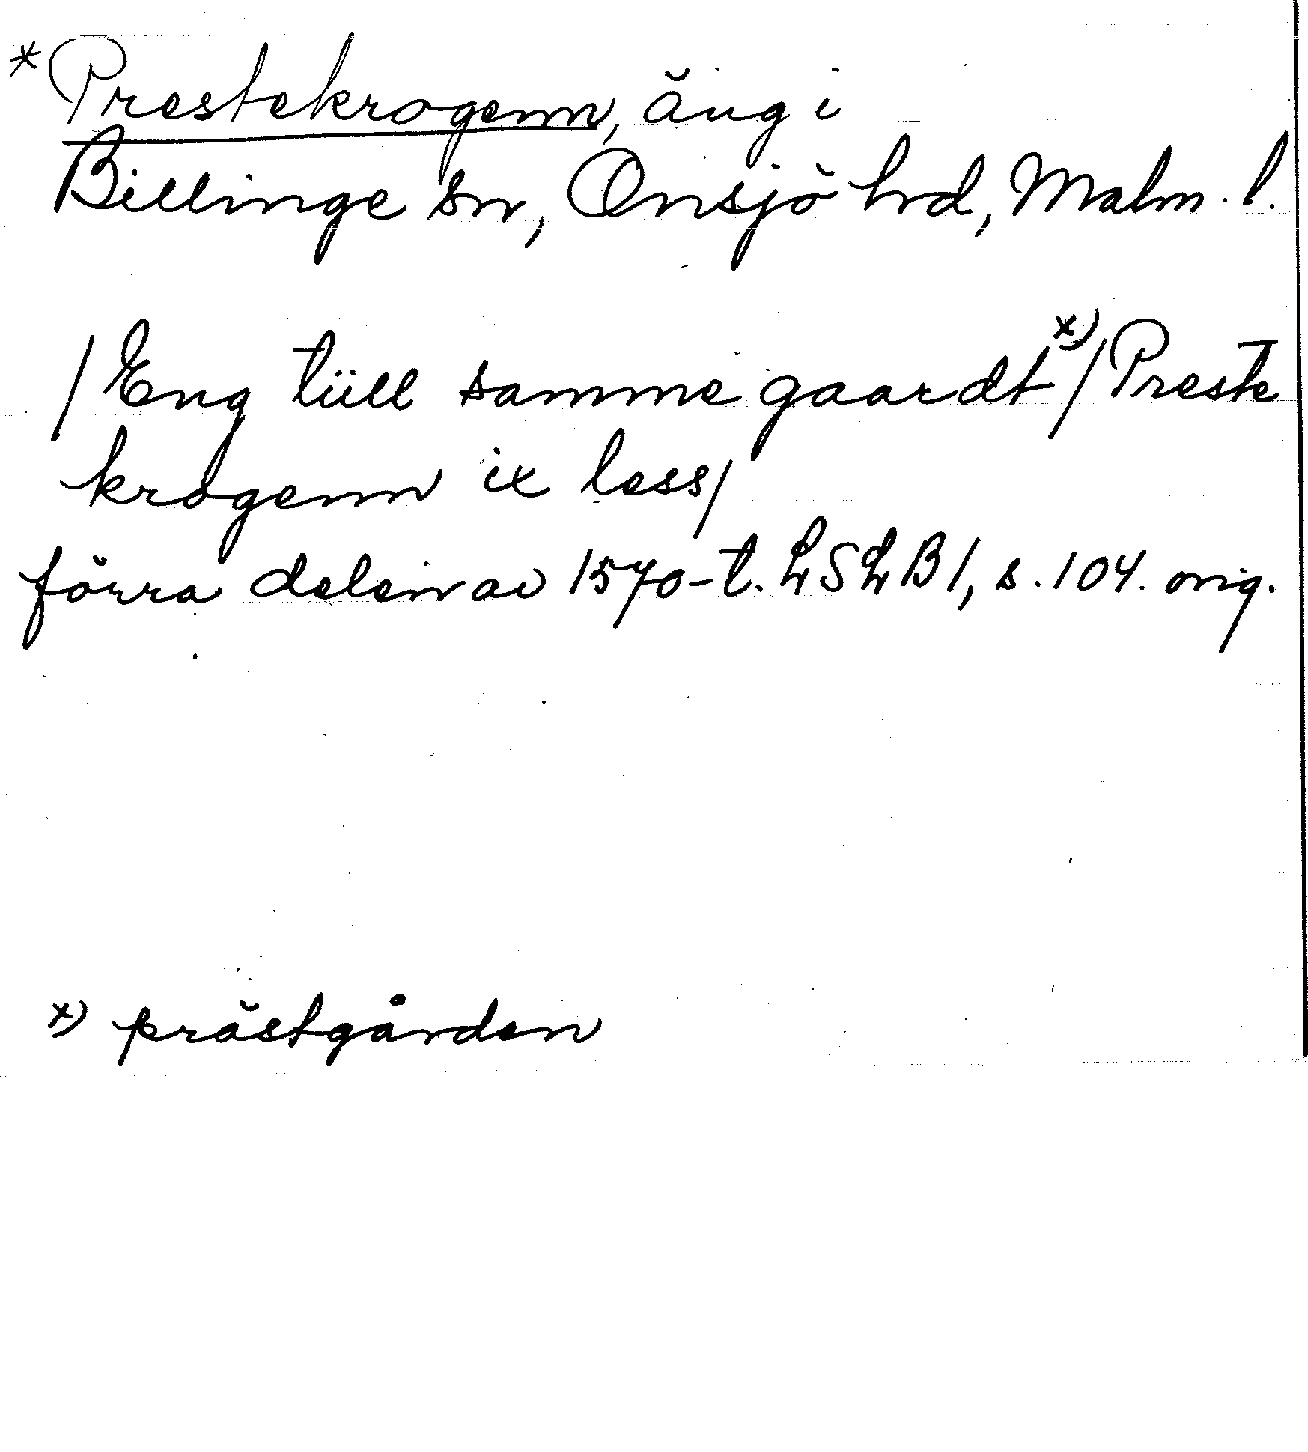 * Prestekrogenn, äng i
Billinge sn, Onsjö hrd, Malm. l.
/Eng tüll samme gaardt x)/Preste
krogenn ix less/
förra delen av 1570-t. LSLB1, s. 104. orig.
x) prästgården